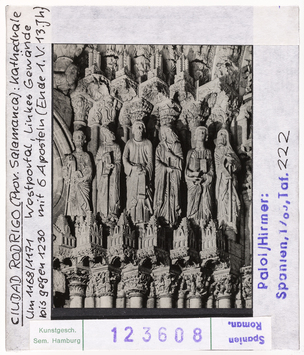 CIUDAD RODRIGO (Prov. Salamanca): Kathedrale
Um 1168/1171 Westportal, Linkes Gewände
bis gegen 1230 mit 6 Aposteln (Ende 1. V. 13. Jh)
Palol/Hirmer:
Spanien, 1/0., Taf. 222
Kunstgesch.
Sem. Hamburg
123608
Spanien
Roman.